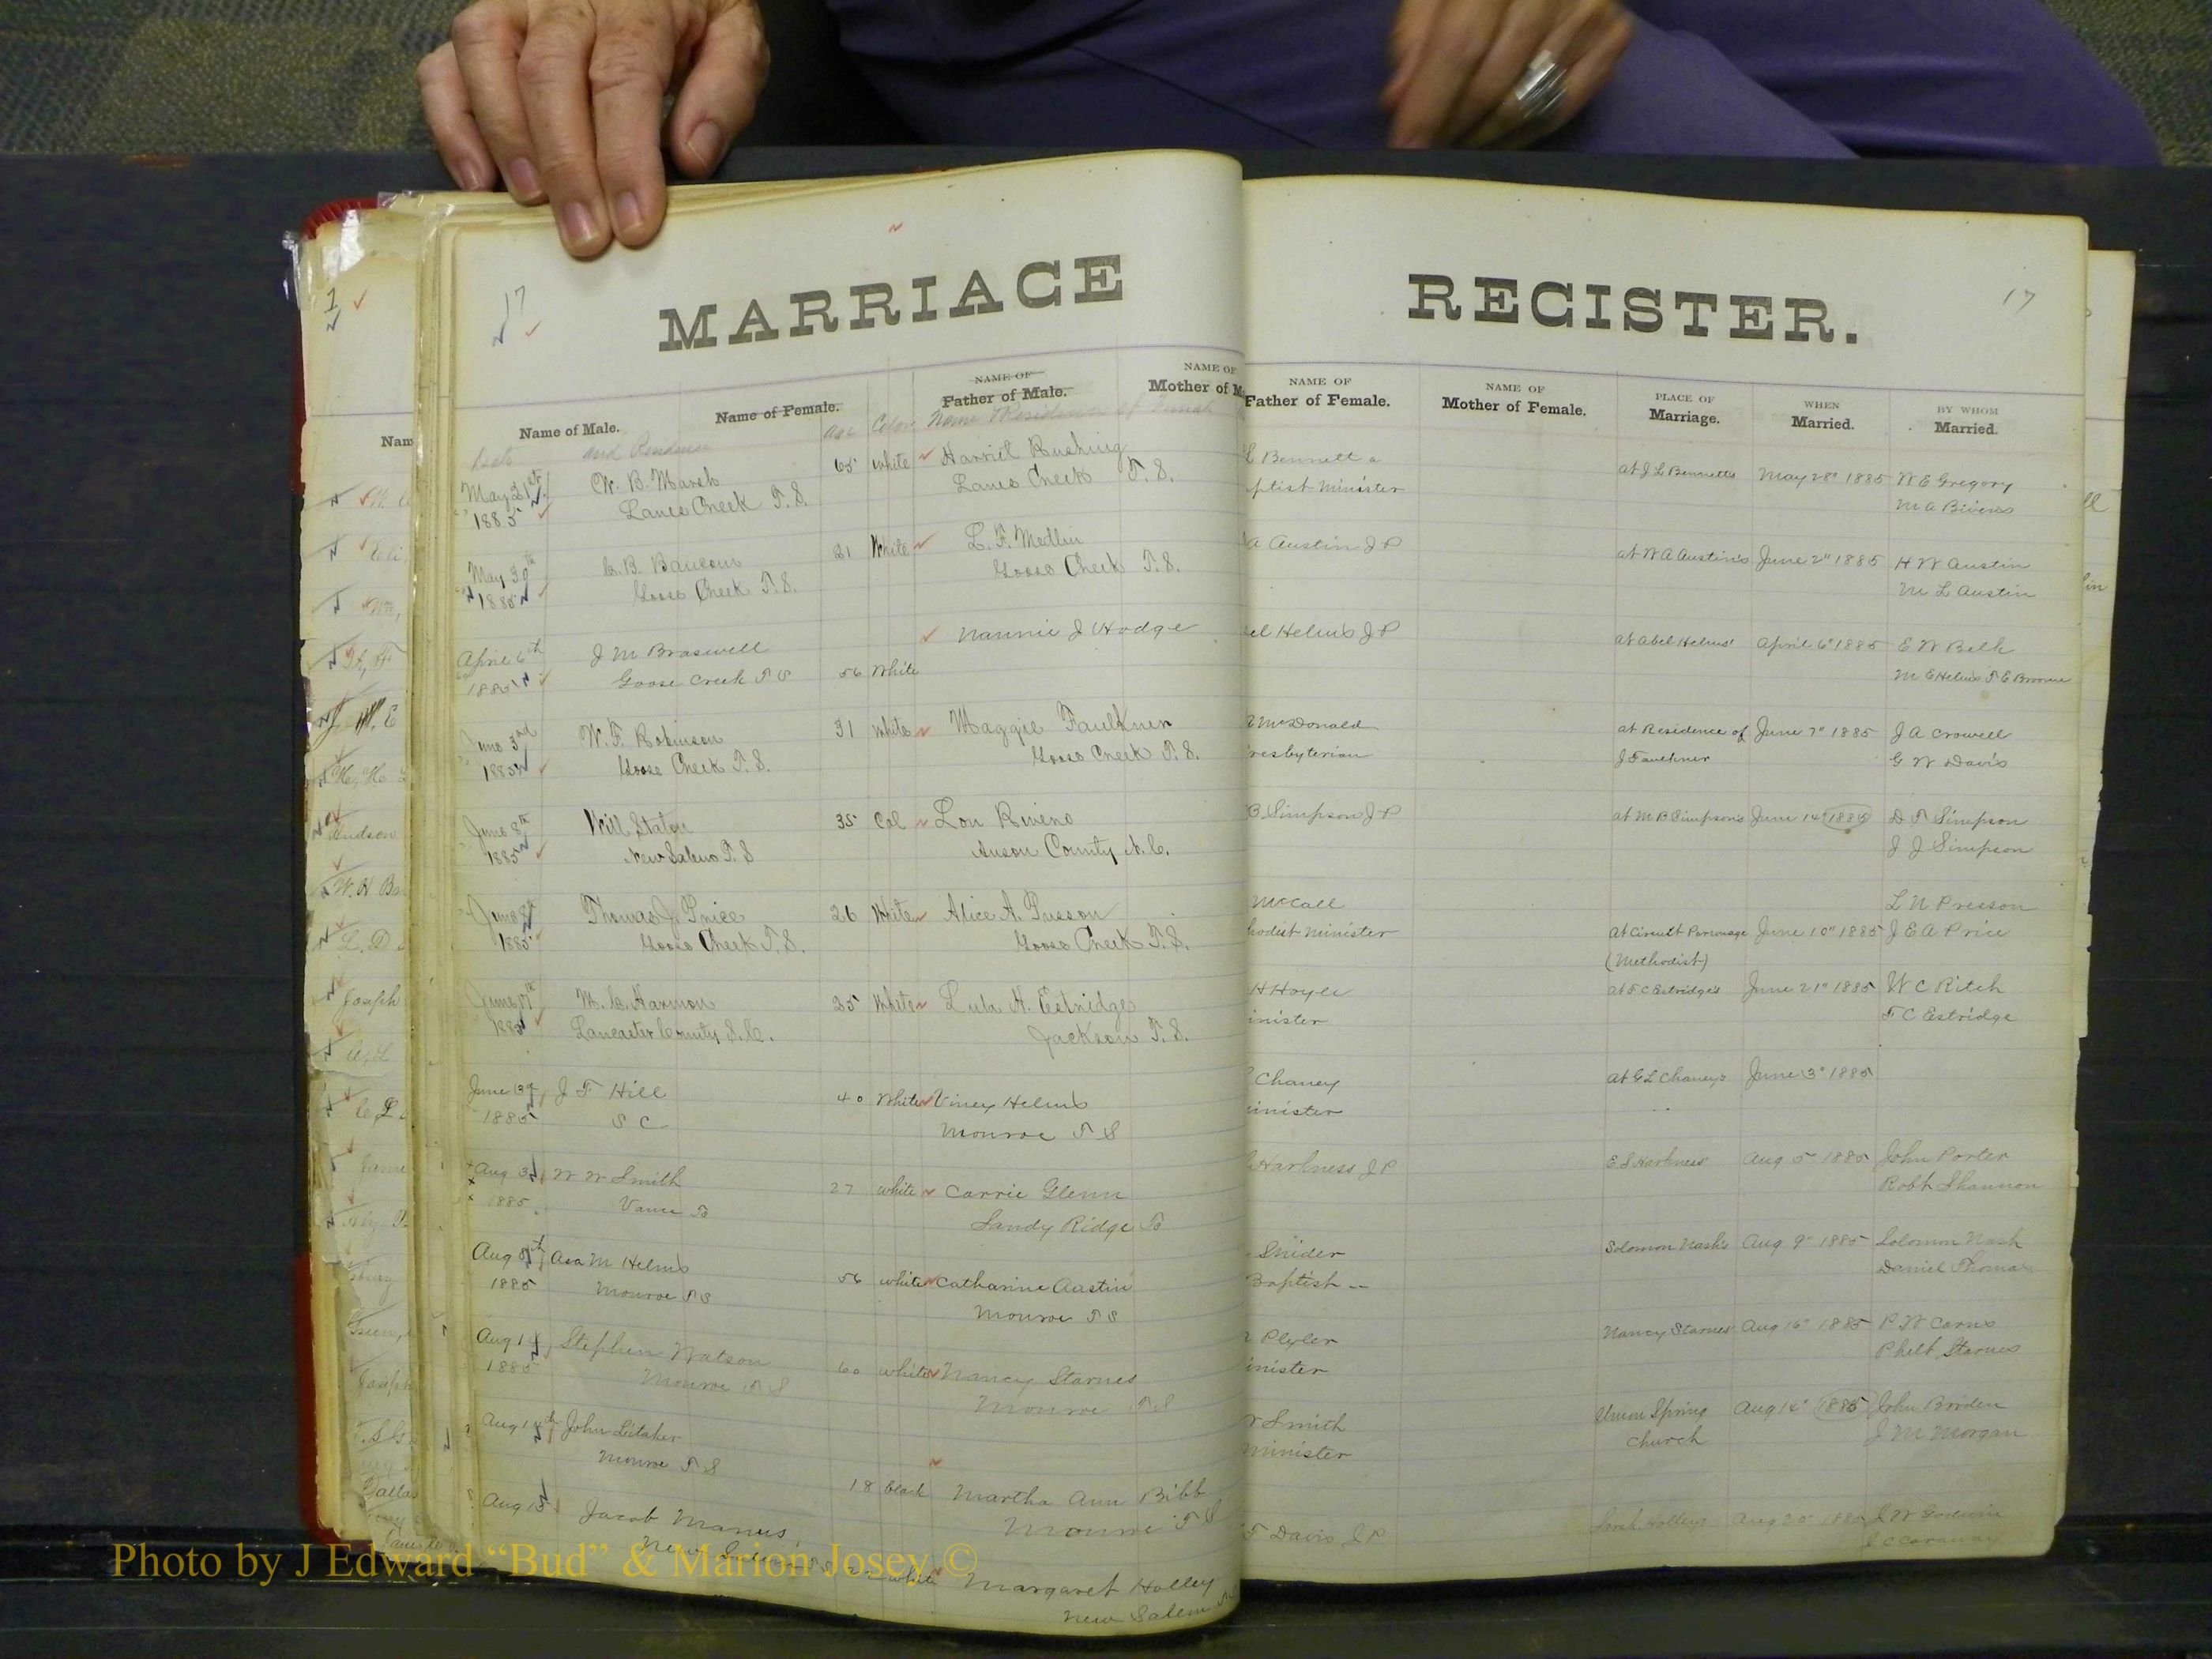 17
MARRIAGE
Name of Male.
Name of Female.
NAME OF
Father of Male.
NAME OF
Mother of M
and Residence
Age
Color
Name & Residence of Female
May 21st
1885
W. B. Marsh
Lanes Creek T. S.
65
white
Harriet Rushing
Lanes Creek T. S.
May 30th
1885
C. B. Baucom
Goose Creek T. S.
21
White
L. F. Medlin
Goose Creek T. S.
April 6th
1885
J M Braswell
Goose Creek T S
56
White
Nannie J Hodge
June 3rd
1885
W. F. Robinson
Goose Creek T. S.
31
White
Maggie Faulkner
Goose Creek T. S.
June 8th
1885
Will Staton
New Salem T. S
35
Col
Lou Rivens
Anson County N. C.
June
1885
Thomas J. Price
Goose Creek T. S.
26
White
Alice A. Presson
Goose Creek T. S.
June
1885
M. C. Harmon
Lancaster County S. C.
35
White
Lula H. Estridge
Jackson T. S.
June
1885
J F Hill
S C
40
White
Viney Helms
Monroe T S
Aug 3
1885
W W Smith
Vance
27
white
Carrie Glenn
Sandy Ridge
Aug 8th
1885
Asa M Helms
Monroe T S
56
white
Catharine Austin
Monroe T S
Aug 14
1885
Stephen Watson
Monroe T S
60
white
Nancy Starnes
Monroe T S
Aug
John Litaker
Monroe T S
18
black
Martha Ann Bibb
Monroe T S
Aug 15
Jacob Manus
New Salem
white
Margaret Holley
New Salem
REGISTER.
17
NAME OF
Father of Female.
NAME OF
Mother of Female.
PLACE OF
Marriage.
WHEN
Married.
BY WHOM
Married.
L Bennett a
ptist Minister
at J L Bennetts
May 28" 1885
W E Gregory
M A Bivens
A Austin J P
at W A Austin's
June 2" 1885
H W Austin
M L Austin
el Helms J P
at Abel Helms'
April 6" 1885
E W Belk
M E Helms T E Broome
McDonald
resbyterian
at Residence of
J Faulkner
June 7" 1885
J A Crowell
G W Davis
B Simpson J P
at M B Simpson's
June 14" 1885
D T Simpson
J J Simpson
McCall
hodist Minister
at Circuit Parsonage
(Methodist)
June 10" 1885
L N Presson
J E A Price
H Hoyle
inister
at F C Estridge's
June 21" 1885
W C Ritch
F C Estridge
Chaney
inister
at G L Chaney's
June 3" 1885
Harkness J P
E S Harkness
Aug 5" 1885
John Porter
Robt Shannon
Snider
Baptist
Solomon Nash's
Aug 9" 1885
Solomon Nash
Daniel Thomas
Plyler
inister
Nancy Starnes'
Aug 16" 1885
P W Carns
Phelt Starnes
Smith
minister
Union Spring
Church
Aug 16" 1885
John Briden
J M Morgan
F Davis J P
Sarah Holleys
Aug 20" 1885
J W Godwin
J C Caraway
Photo by J Edward “Bud” & Marion Josey ©